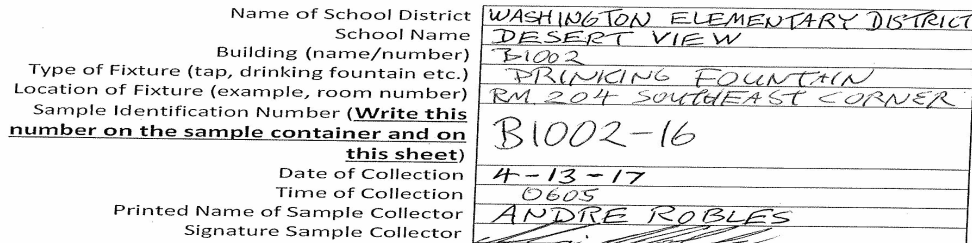 Name of School District WASHINGTON ELEMENTARY DISTRICT
School Name DESERT VIEW
Building (name/number) B1002
Type of Fixture (tap, drinking fountain etc.) DRINKING FOUNTAIN
Location of Fixture (example, room number) RM 204 SOUTHEAST CORNER
Sample Identification Number (Write this
number on the sample container and on B1002-16
this sheet)
Date of Collection 4-13-17
Time of Collection 0605
Printed Name of Sample Collector ANDRE ROBLES
Signature Sample Collector